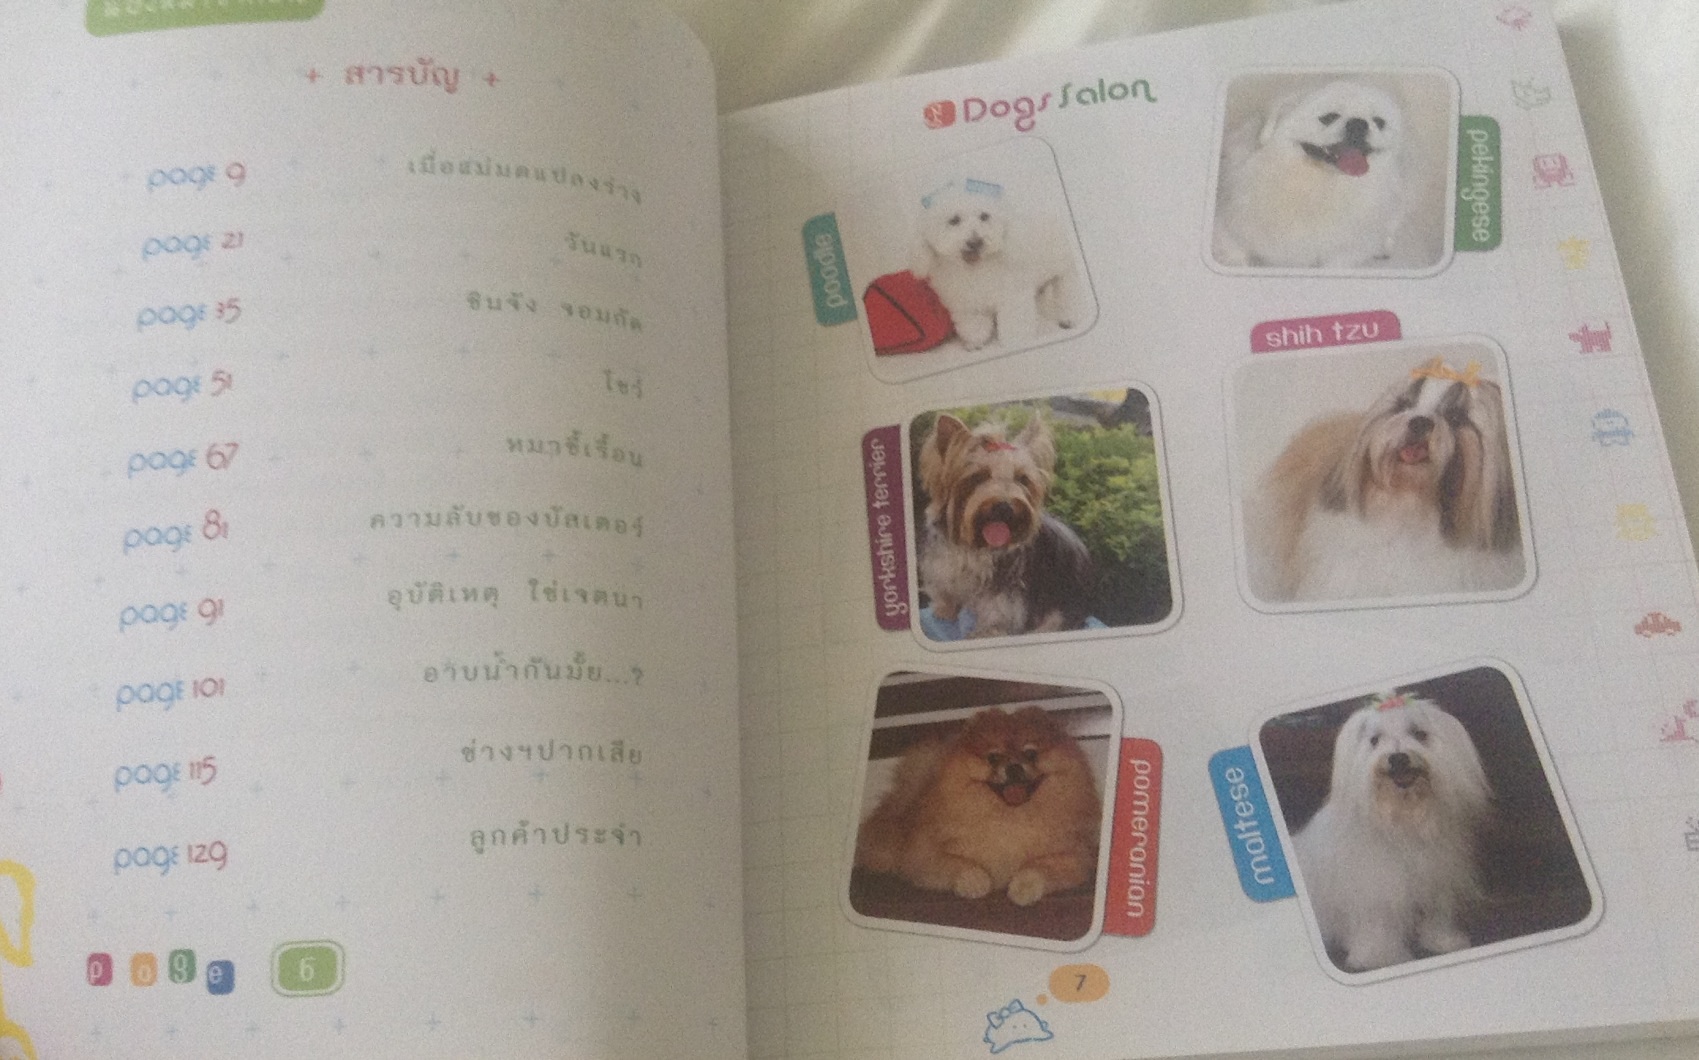 + สารบัญ +
page 9 เมื่อสมมตแปลงร่าง
page 21 วันแรก
page 35 ชินจัง จอมกัด
page 51 โชว์
page 67 หมาขี้เรื้อน
page 81 ความลับของบัสเตอร์
page 91 อุบัติเหตุ ใช่เจตนา
page 101 อาบน้ำกันมั้ย...?
page 115 ช่างฯปากเสีย
page 129 ลูกค้าประจำ
page 6
Dogs Salon
poodle
pekingese
shih tzu
yorkshire terrier
pomeranian
maltese
7